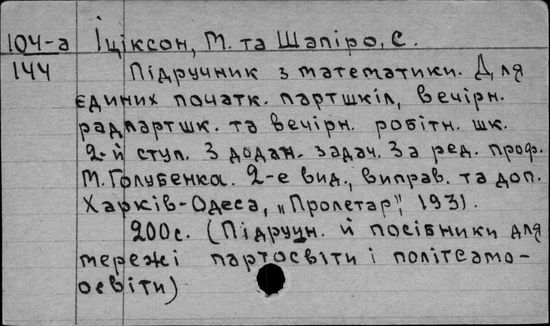 104-а Іціксон, М. та Шапіро, С.
144 Підручник з математики. Для
єдиних початк. партшкіл, вечірн.
радпартшк. та вечірн. робітн. шк.
2-й ступ. З додан. задач. За ред. проф.
М. Голубенка. 2-е вид., виправ. та доп.
Харків-Одеса, „Пролетар", 1931.
200с. (Підручн. й посібники для
мережі партосвіти і політсамо-
освіти)